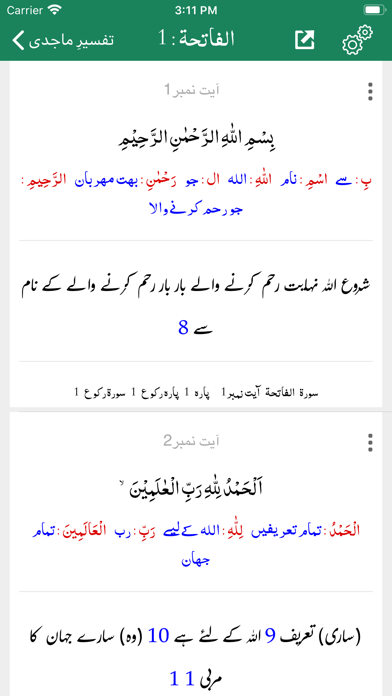 Carrier 3:11 PM
تفسیرِ ماجدی الفاتحة : 1
آیت نمبر 1
بِسْمِ اللّٰهِ الرَّحْمٰنِ الرَّحِیْمِ
بِ : سے اسْمِ : نام اللّٰهِ : الله ال : جو رَحْمٰنِ : بہت مہربان الرَّحِیمِ :
جو رحم کرنے والا
شروع اللہ نہایت رحم کرنے والے بار بار رحم کرنے والے کے نام
سے 8
سورۃ الفاتحة آیت نمبر 1 پارہ 1 پارہ رکوع 1 سورۃ رکوع 1
آیت نمبر 2
اَلْحَمْدُ لِلّٰهِ رَبِّ الْعٰلَمِیْنَ ۙ
الْحَمْدُ : تمام تعریفیں لِلّٰهِ : الله کے لیے رَبِّ : رب الْعَالَمِينَ : تمام
جہان
(ساری) تعریف 9 اللہ کے لئے ہے 10 (وہ) سارے جہان کا
مربی 11